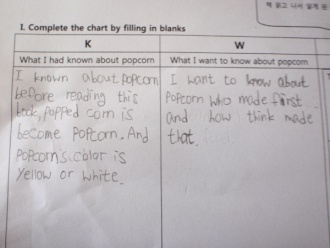 책 읽고 나서 알게 된
I. Complete the chart by filling in blanks
K
W
What I had known about popcorn
What I want to know about popcorn
I known about popcorn
before reading this
book, popped corn is
become popcorn. And
popcorn's color is
yellow or white.
I want to know about
popcorn who made first
and how think made
that.